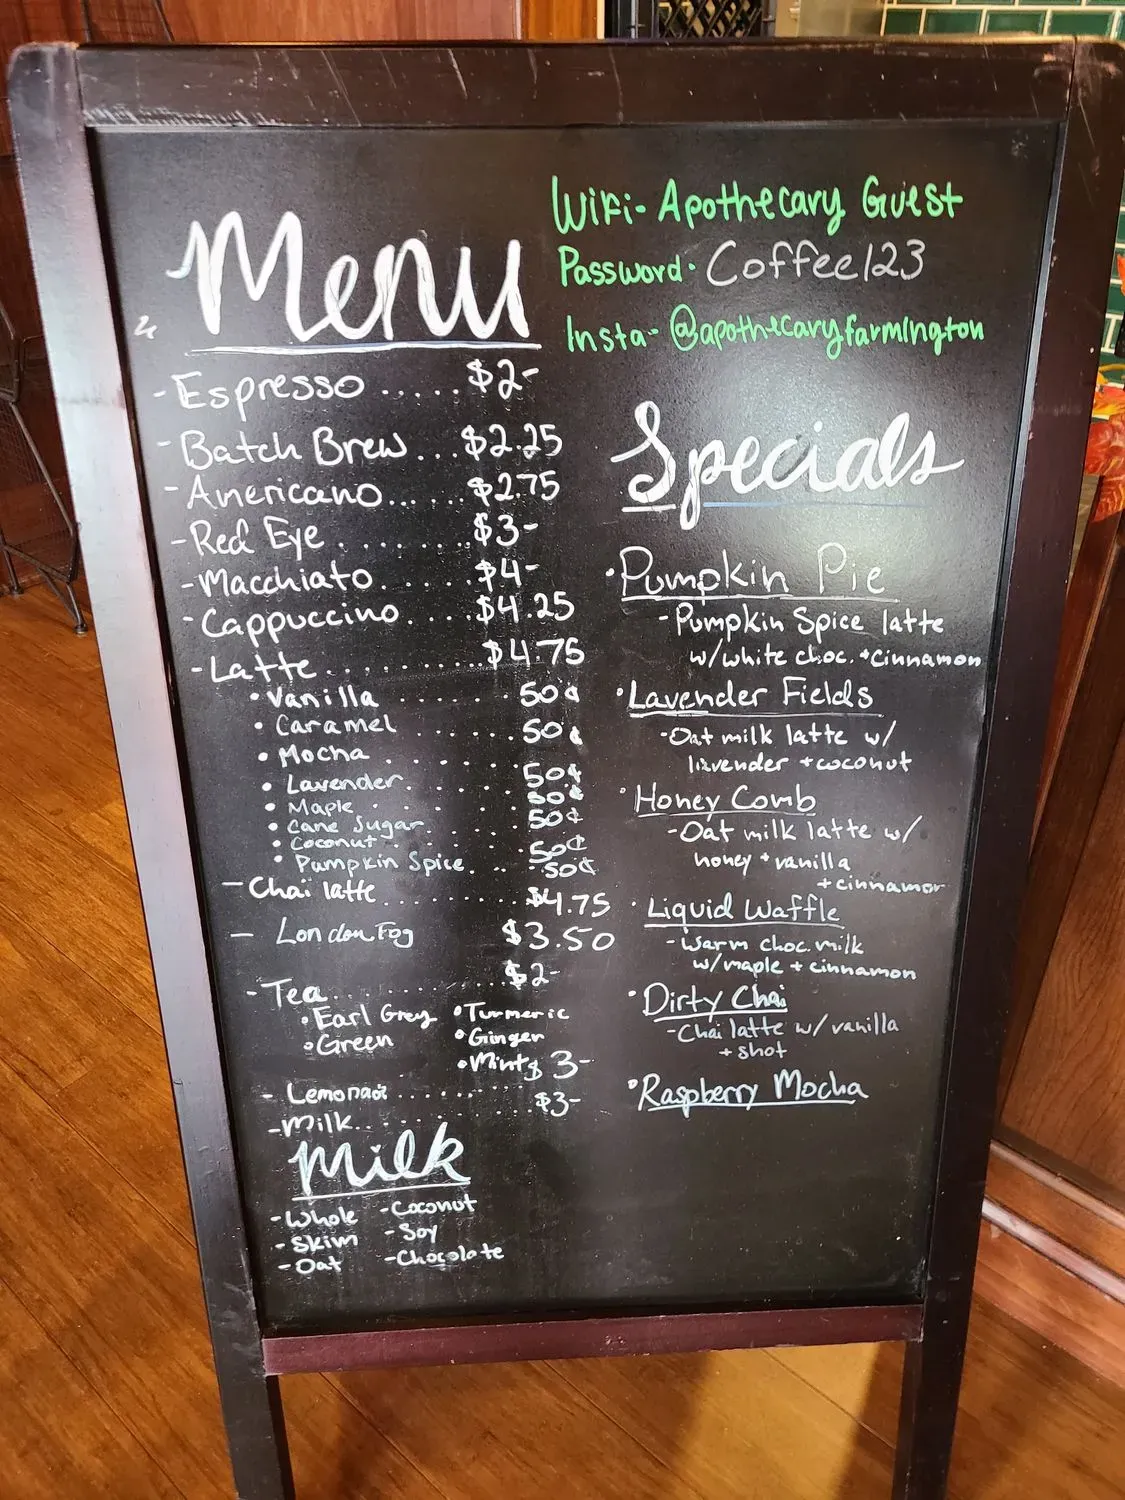 Wifi- Apothecary Guest
Password- Coffee123
Insta- @apothecaryfarmington
Menu
- Espresso ..... $2-
- Batch Brew ... $2.25
- Americano ...... $2.75
- Red Eye ........ $3-
- Macchiato ...... $4-
- Cappuccino .... $4.25
- Latte ........... $4.75
• Vanilla ...... 50¢
• Caramel ...... 50¢
• Mocha ....... 50¢
• Lavender ...... 50¢
• Maple ...... 50¢
• Cane Sugar ..... 50¢
• Coconut ...... 50¢
• Pumpkin Spice ... 50¢
- Chai latte ......... $4.75
- London Fog $3.50
- Tea ........... $2-
• Earl Grey • Turmeric
• Green • Ginger
• Mint
- Lemonade ...... $3-
- Milk ....... $3-
Milk
- Whole - Coconut
- Skim - Soy
- Oat - Chocolate
Specials
• Pumpkin Pie
- Pumpkin Spice latte
w/white choc. + cinnamon
• Lavender Fields
- Oat milk latte w/
lavender + coconut
• Honey Comb
- Oat milk latte w/
honey + vanilla
+ cinnamon
• Liquid Waffle
- Warm choc. milk
w/maple + cinnamon
• Dirty Chai
- Chai latte w/ vanilla
+ shot
• Raspberry Mocha